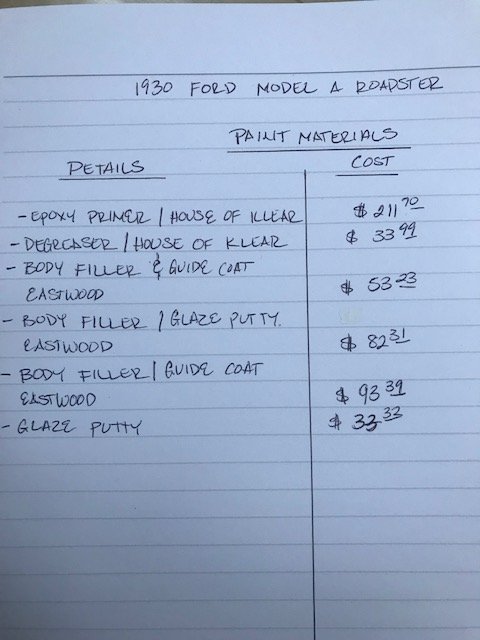 1930 FORD MODEL A ROADSTER
PAINT MATERIALS
DETAILS COST
- EPOXY PRIMER / HOUSE OF KLEAR $ 211 70
- DEGREASER / HOUSE OF KLEAR $ 33 99
- BODY FILLER & GUIDE COAT
EASTWOOD $ 53 23
- BODY FILLER / GLAZE PUTTY.
EASTWOOD $ 82 31
- BODY FILLER / GUIDE COAT
EASTWOOD $ 93 39
- GLAZE PUTTY $ 33 33